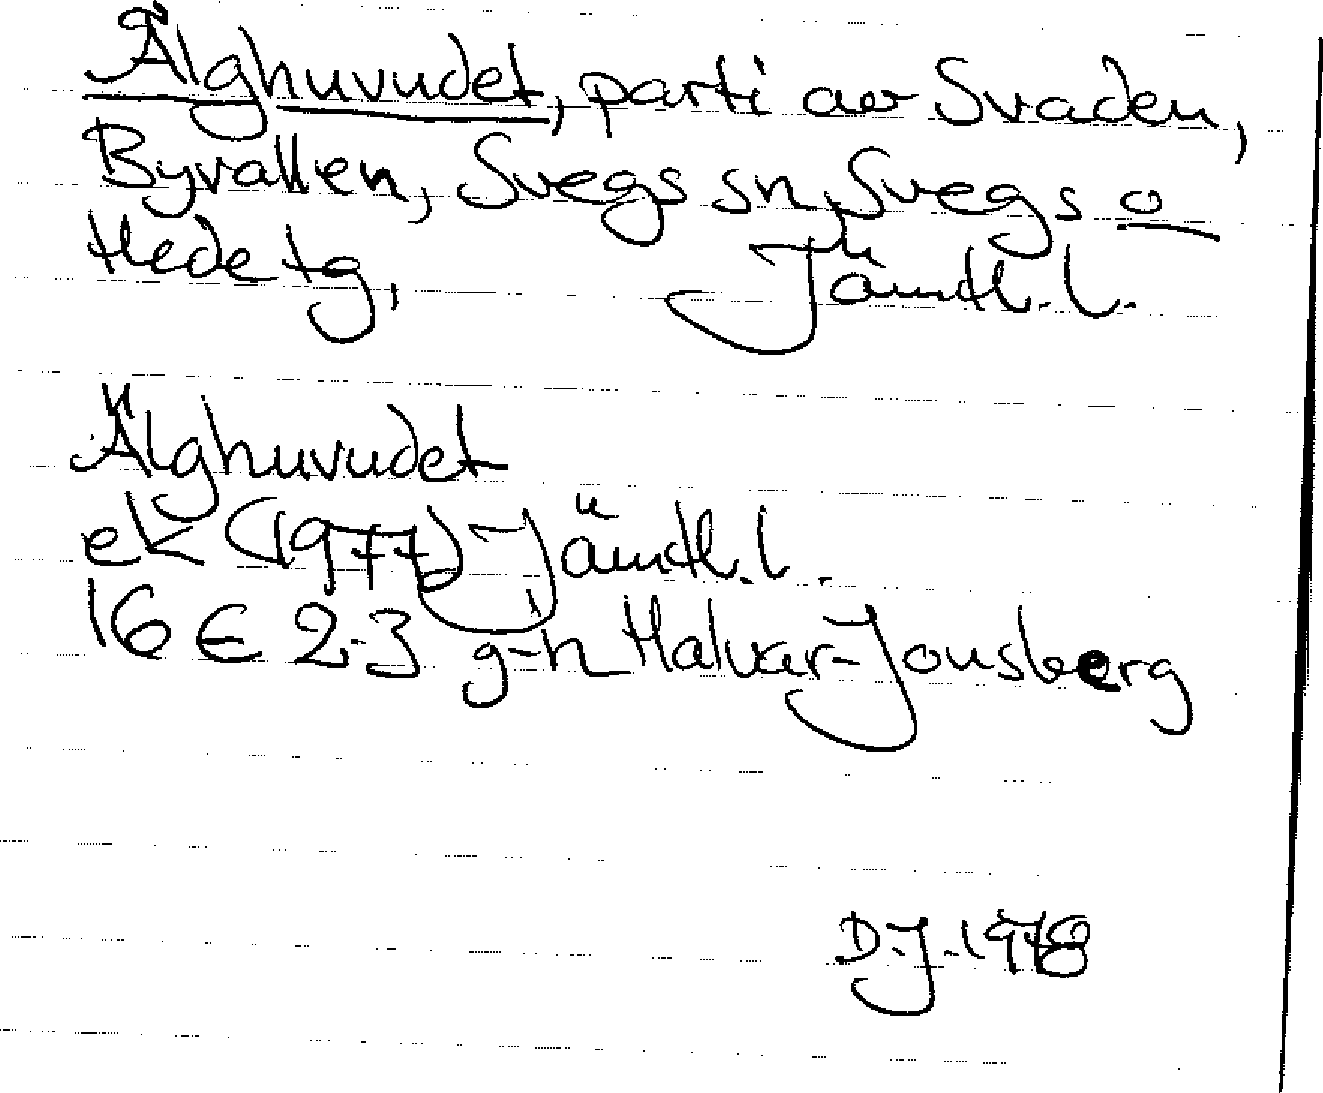 Älghuvudet, parti av Svaden,
Byvallen, Svegs sn, Svegs o
Hede tg, Jämtl. l.
Älghuvudet
ek (1977) Jämtl. l.
16 E 2-3 g-h Halvar-Jonsberg
D.J. 1978